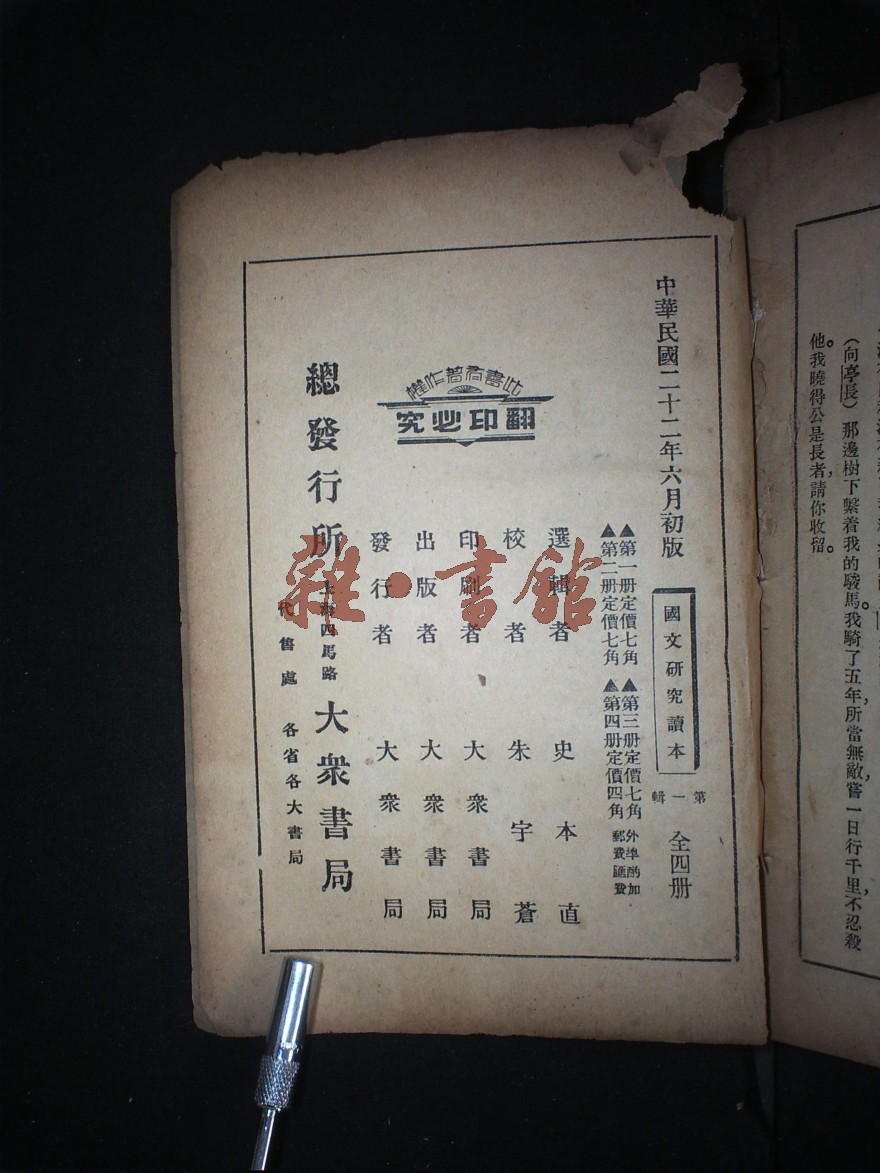 他。我曉得公是長者,請你收留。
(向亭長)那邊樹下繫着我的駿馬,我騎了五年,所當無敵,嘗一日行千里,不忍殺
中華民國二十二年六月初版
國文研究讀本
第一輯
全四册
▲第一册定價七角
▲第二册定價七角
▲第三册定價七角
▲第四册定價四角
外準酌加
郵費匯費
選輯者 史本直
校者 朱宇蒼
印刷者 大衆書局
出版者 大衆書局
發行者 大衆書局
此書有著作權
翻印必究
總發行所 上海四馬路 大衆書局
代售處 各省各大書局
雜·書館